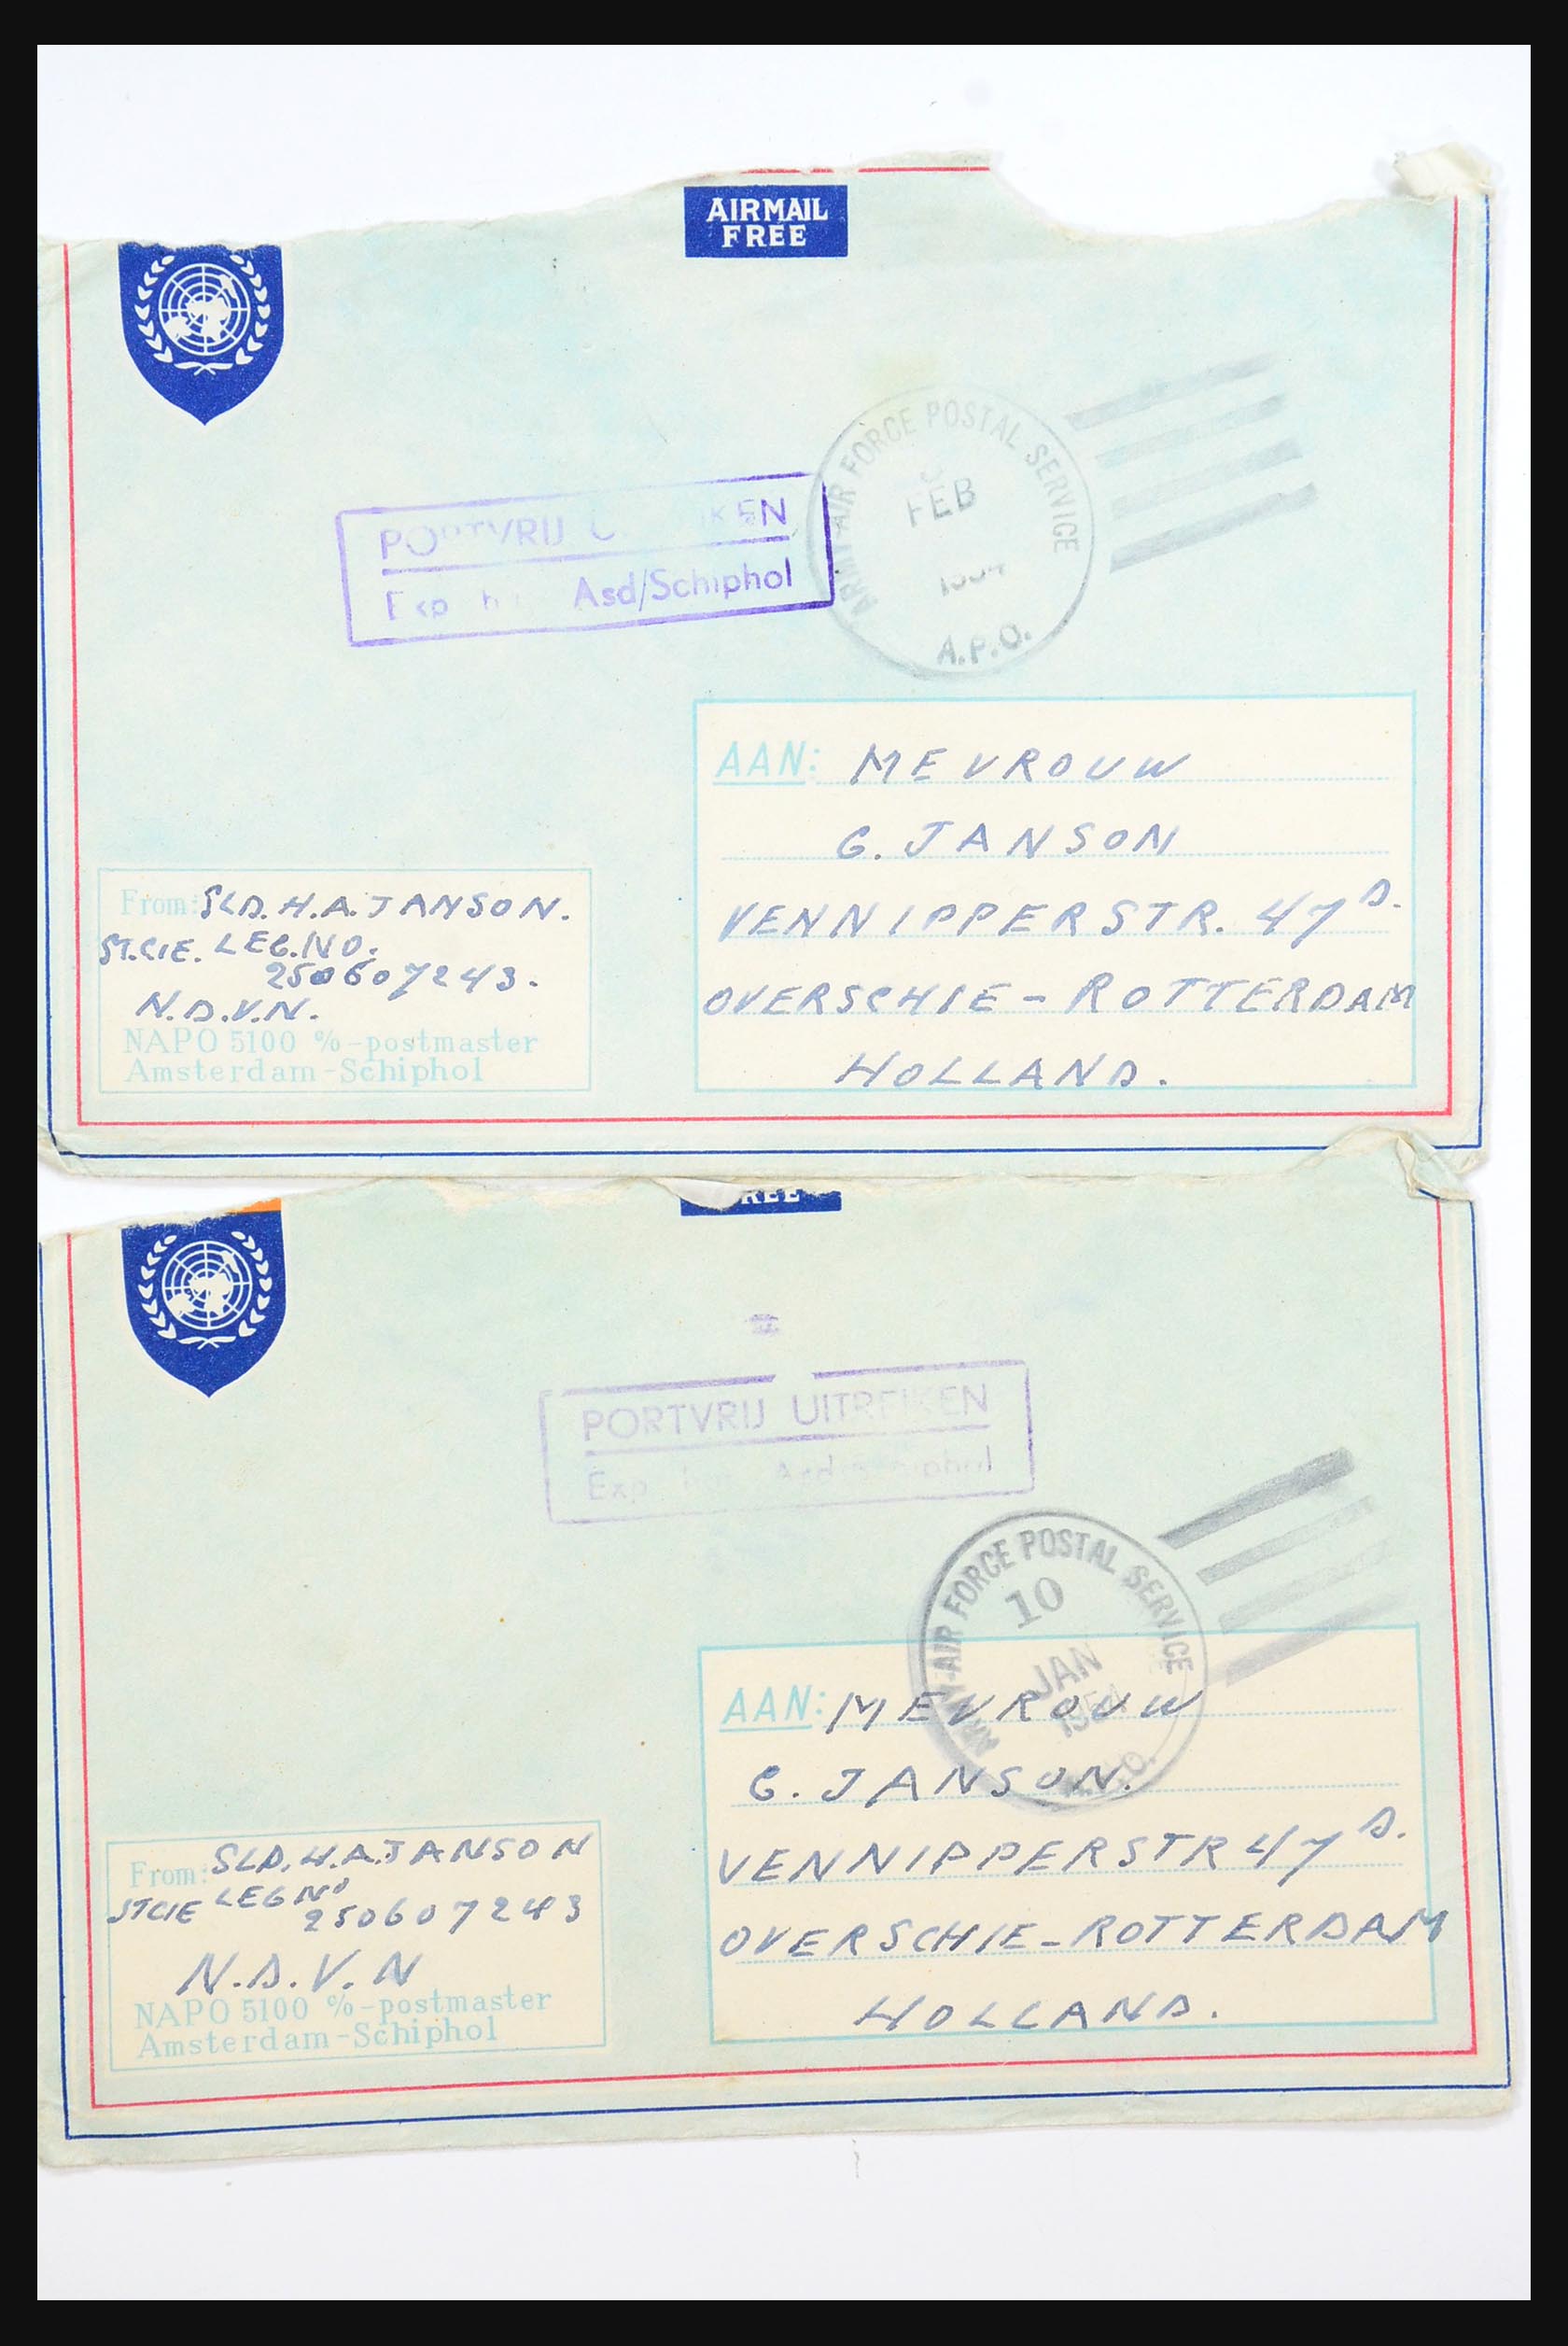 AIRMAIL
FREE
ARMY-AIR FORCE POSTAL SERVICE
FEB
A.P.O.
PORTVRIJ
Exp Asd/Schiphol
AAN: MEVROUW
G. JANSON
VENNIPPERSTR. 47 D.
OVERSCHIE - ROTTERDAM
HOLLAND.
From: SLD. H.A. JANSON.
ST.CIE. LEG.NO.
250607243.
N.D.V.N.
NAPO 5100 %-postmaster
Amsterdam-Schiphol
PORTVRIJ UITREIKEN
Exp
ARMY-AIR FORCE POSTAL SERVICE
10
JAN
1954
AAN: MEVROUW
G. JANSON.
VENNIPPERSTR 47 D.
OVERSCHIE - ROTTERDAM
HOLLAND.
From: SLD. H.A. JANSON
STCIE LEGNO
250607243
N.D.V.N
NAPO 5100 %-postmaster
Amsterdam-Schiphol